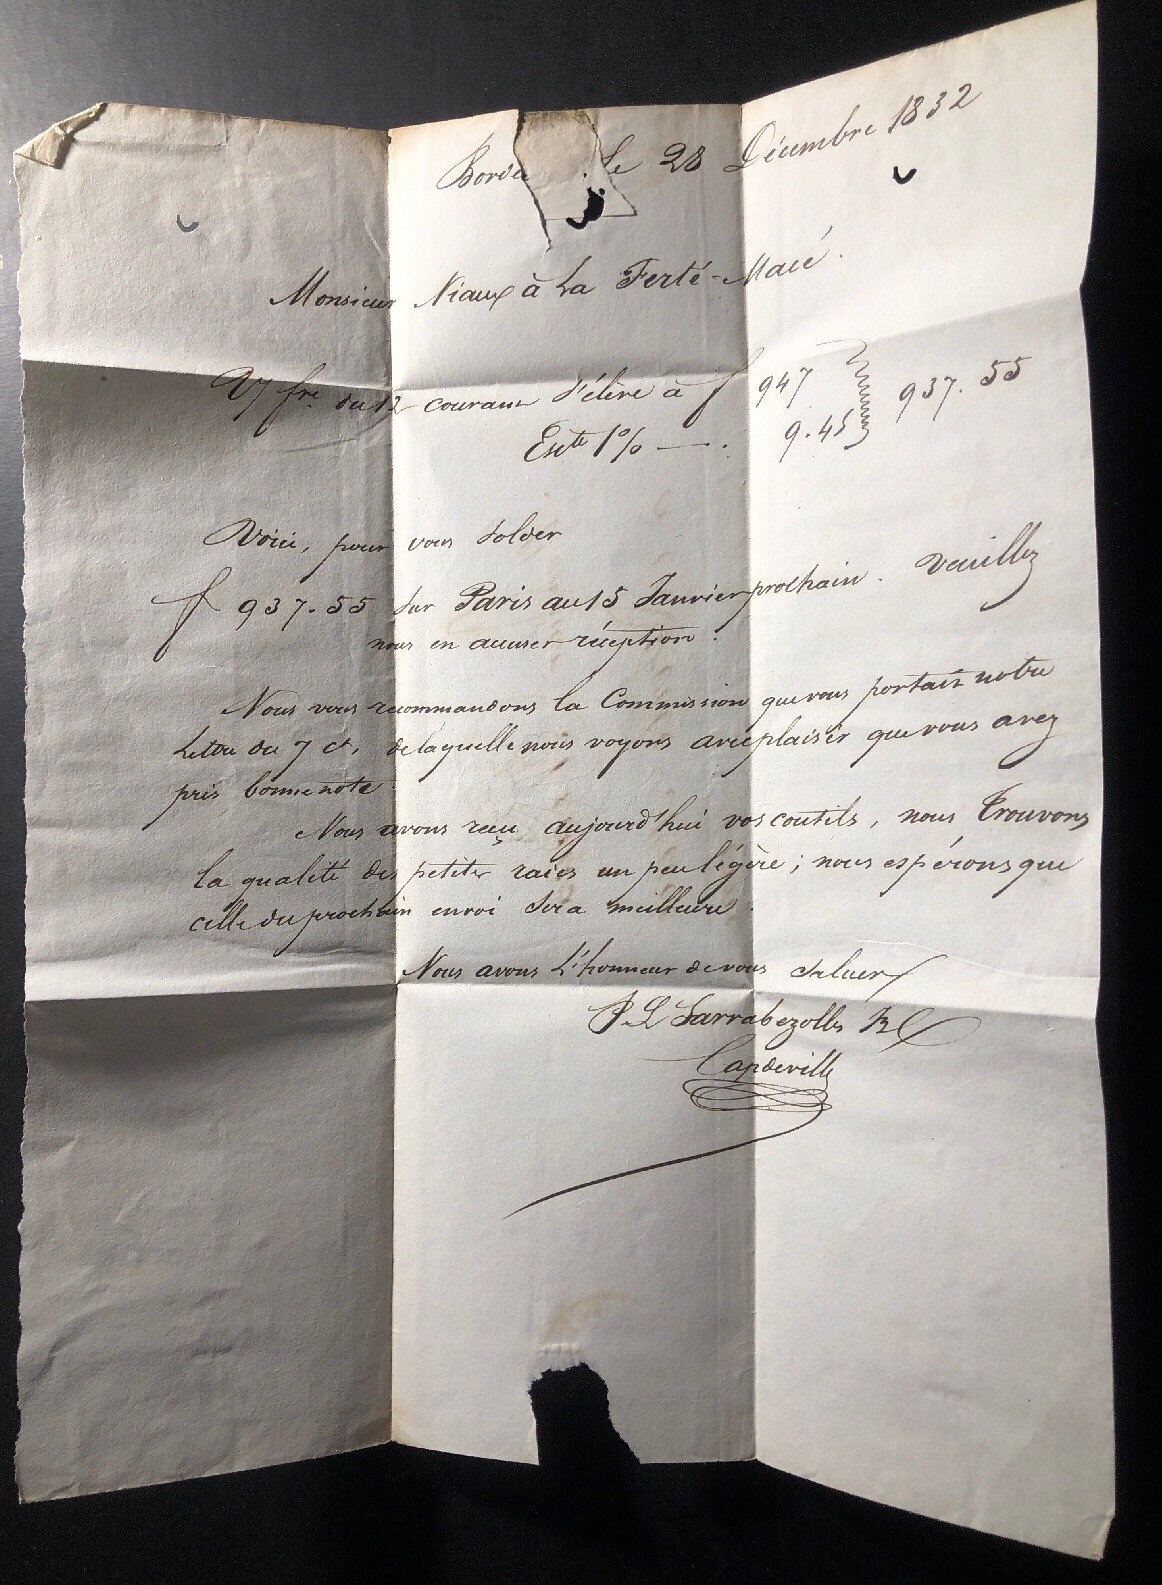 Borde Le 28 Décembre 1832
Monsieur Niaux à La Ferté-Macé.
V/ fre du 12 courant s'élève à f 947 937.55
Escte 1% —. 9.45
Voici, pour vous solder
f 937.55 sur Paris au 15 Janvier prochain. Veuillez
nous en accuser réception.
Nous vous recommandons la Commission que vous portait notre
Lettre du 7 ct, de laquelle nous voyons avec plaisir que vous avez
pris bonne note.
Nous avons reçu aujourd'hui vos coutils, nous Trouvons
la qualité des petites raies un peu légère; nous espérons que
celle du prochain envoi sera meilleure.
Nous avons L'honneur de vous saluer
P. L. Sarrabezolles
Capdeville